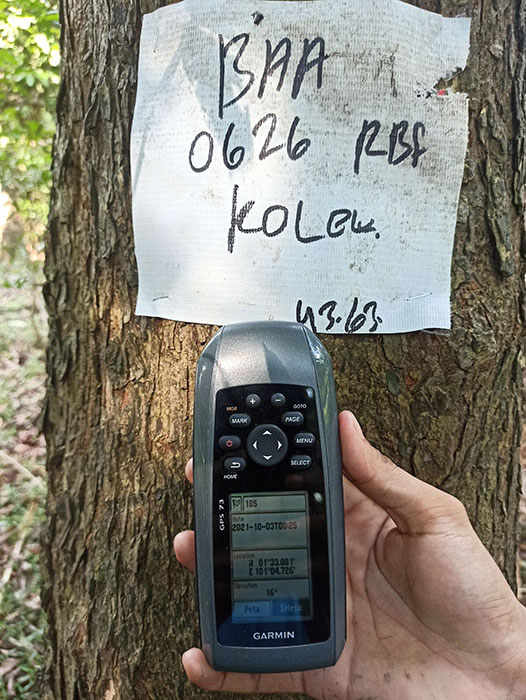 BAA
0626 RBF
KOLEK.
43.63.
MOB
GOTO
MARK
PAGE
MENU
SELECT
HOME
GPS 73
105
Note
2021-10-03T00:25
Location
N 01°33.001'
E 101°04.726'
Elevation
Peta
Selesai
GARMIN